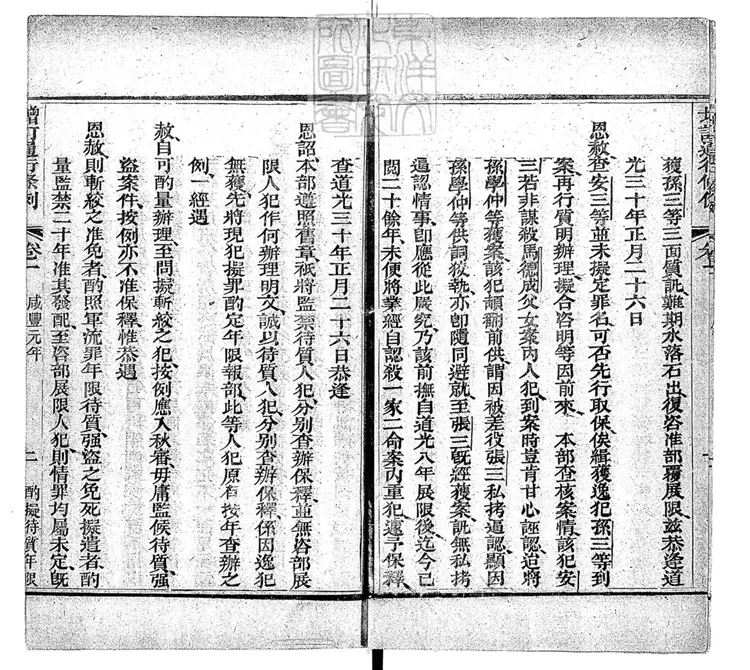 獲孫三等三面質訊難期水落石出復咨准部覆展限茲恭逢道
光三十年正月二十六日
恩赦查安三等並未擬定罪名可否先行取保俟緝獲逸犯孫三等到
案再行質明辦理擬合咨明等因前來 本部查核案情該犯安
三若非謀殺馬德成父女案內人犯到案時豈肯甘心誣認迨將
孫學仲等獲案該犯頓翻前供謂因被差役張三私拷逼認顯因
孫學仲等供詞狡執亦卽隨同避就至張三旣經獲案訊無私拷
逼認情事卽應從此嚴究乃該前撫自道光八年展限後迄今已
閱二十餘年未便將業經自認殺一家二命案內重犯遽予保釋
查道光三十年正月二十六日恭逢
恩詔本部遵照舊章祇將監禁待質人犯分別查辦保釋並無咨部展
限人犯作何辦理明文誠以待質人犯分別查辦保釋係因逸犯
無獲先將現犯擬罪酌定年限報部此等人犯原有按年查辦之
例一經遇
赦自可酌量辦理至問擬斬絞之犯按例應入秋審毋庸監候待質强
盜案件按例亦不准保釋惟恭遇
恩赦則斬絞之准免者酌照軍流罪年限待質强盜之免死擬遣者酌
量監禁二十年准其發配至咨部展限人犯則情罪均屬未定旣
增訂通行條例 卷一 咸豐元年 二 酌擬待質年限